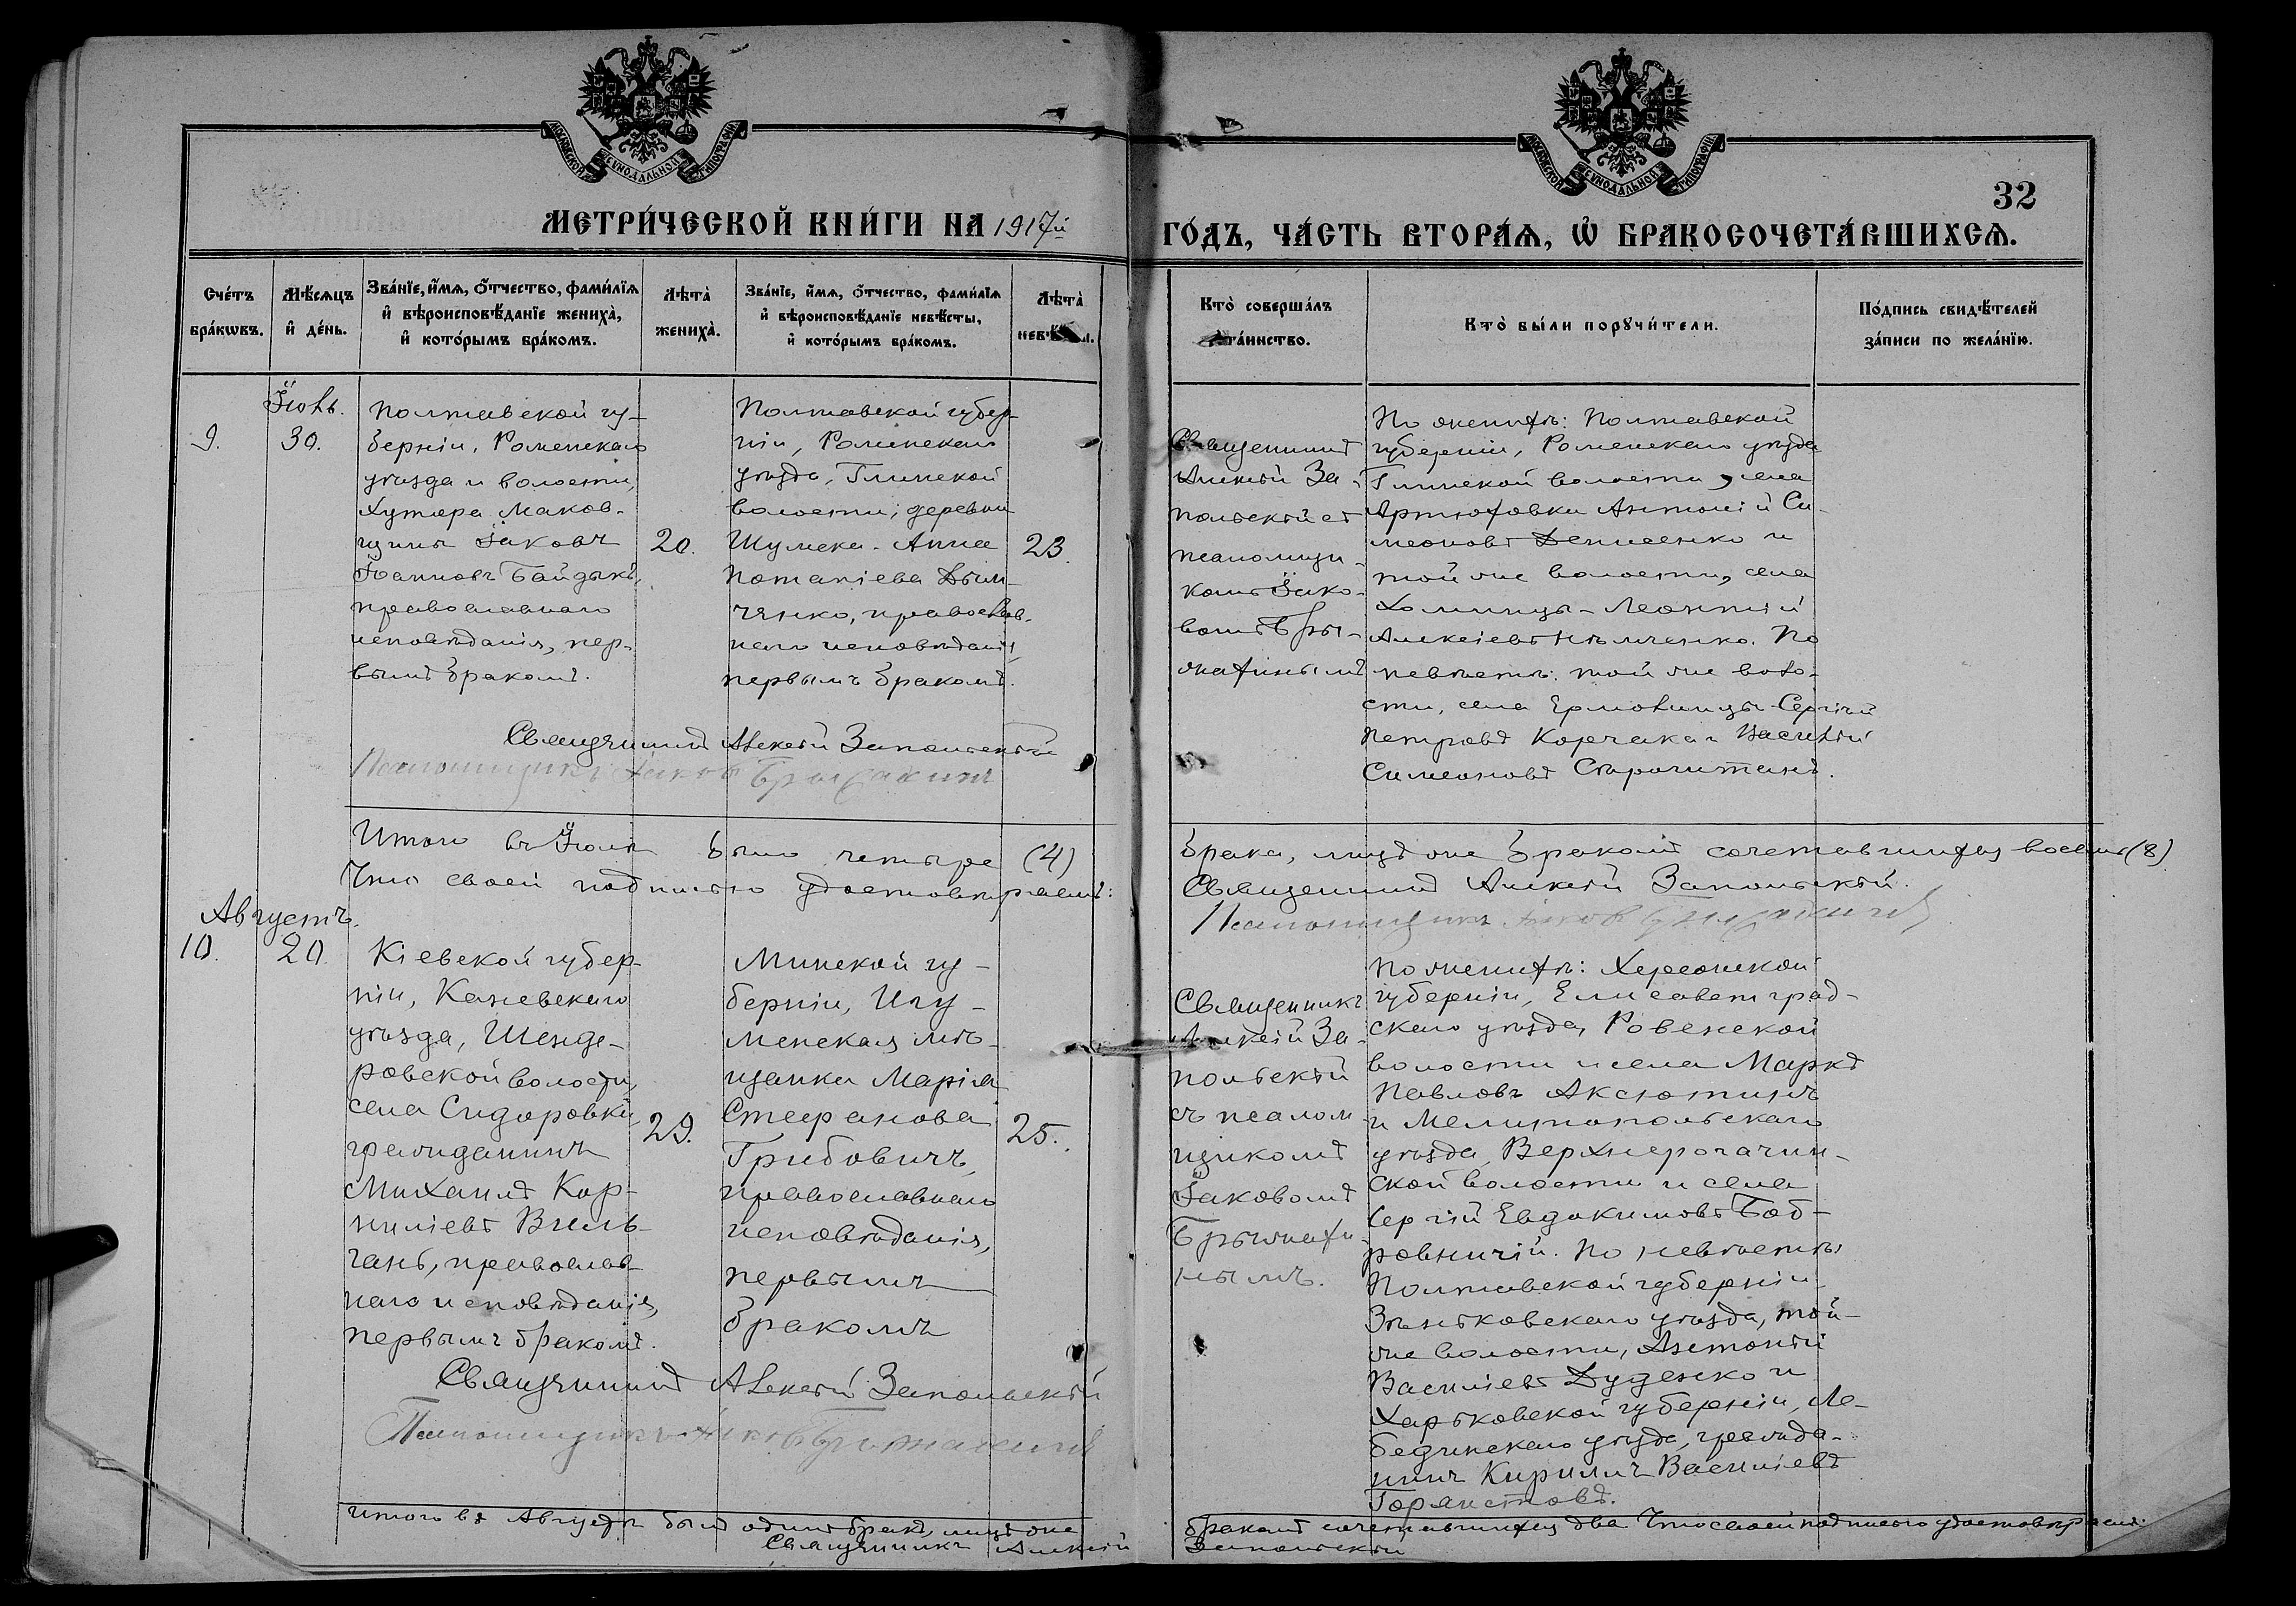 МОСКОВСКОЙ СѴНОДАЛЬНОЙ ТИПОГРАФІИ
МОСКОВСКОЙ СѴНОДАЛЬНОЙ ТИПОГРАФІИ
32
МЕТРИ́ЧЕСКОЙ КНИ́ГИ НА 1917й
ГО́ДЪ, ЧА́СТЬ ВТОРА́Я, Ѡ БРАКОСОЧЕТА́ВШИХСЯ.
Сче́тъ
бра́кѡвъ.
Мѣ́сяцъ
и де́нь.
Зва́нїе, и́мя, ѻ́тчество, фами́лїя
и вѣроисповѣ́данїе жениха̀,
и кото́рымъ бра́комъ.
Лѣта̀
жениха̀.
Зва́нїе, и́мя, ѻ́тчество, фами́лїя
и вѣроисповѣ́данїе невѣ́сты,
и кото́рымъ бра́комъ.
Лѣта̀
Кто̀ соверша́лъ
та́инство.
Кто̀ бы́ли порꙋчи́тели.
По́дпись свидѣ́телей
за́писи по жела́нїю.
9.
Іюль.
30.
Полтавской гу-
берніи, Роменскаго
уѣзда и волости,
хутора Маков-
щины Іаковъ
Іоанновъ Байдакъ,
православнаго
исповѣданія, пер-
вымъ бракомъ.
20.
Полтавской губер-
ніи, Роменскаго
уѣзда, Глинской
волости, деревни
Шумска Анна
Потапіева Дым-
ченко, православ-
наго исповѣданія,
первымъ бракомъ.
23.
Священникъ
Алексій За-
польскій съ
псаломщи-
комъ Іако-
вомъ Бры-
жахинымъ
По женихѣ: Полтавской
губерніи, Роменскаго уѣзда
Глинской волости, села
Артюховки Антоній Си-
меоновъ Денисенко и
той же волости, села
Хоминцы - Леонтій
Алексіевъ Нѣмченко. По
невѣстѣ: той же воло-
сти, села Ермолинцы Сергій
Петровъ Корчака и Василій
Симеоновъ Старокитанъ.
Священникъ Алексій Запольскій
Псаломщикъ Іаковъ Брыжахинъ
Итого въ Іюлѣ было четыре (4)
брака, лицъ же бракомъ сочетавшихся восемь (8)
Что своей подписью удостовѣряемъ:
Священникъ Алексій Запольскій.
Псаломщикъ Іаковъ Брыжахинъ
Августъ.
10.
20.
Кіевской губер-
ніи, Каневскаго
уѣзда, Шенде-
ровской волости,
села Сидоровки
гражданинъ
Михаилъ Кор-
ниліевъ Виль-
чань, православ-
наго исповѣданія,
первымъ бракомъ.
29.
Минской гу-
берніи, Игу-
менская мѣ-
щанка Марія
Стефанова
Грибовичъ,
православнаго
исповѣданія,
первымъ
бракомъ
25.
Священникъ
Алексій За-
польскій
съ псалом-
щикомъ
Іаковомъ
Брыжахи-
нымъ.
По женихѣ: Херсонской
губерніи, Елисаветград-
скаго уѣзда, Ровенской
волости и села Маркъ
Павловъ Аксютинъ
и Мелитопольскаго
уѣзда, Верхнерогачин-
ской волости и села
Сергій Евдокимовъ Боб-
ровничій. По невѣстѣ
Полтавской губерніи
Зѣньковскаго уѣзда, той-
же волости, Антоній
Василіевъ Дуденко и
Харьковской губерніи, Ле-
бединскаго уѣзда, гражда-
нинъ Кириллъ Василіевъ
Горлистовъ.
Священникъ Алексій Запольскій
Псаломщикъ Іаковъ Брыжахинъ
Итого въ Августѣ былъ одинъ бракъ, лицъ же
бракомъ сочетавшихся два Что своей подписью удостовѣряемъ:
Священникъ Алексій
Запольскій